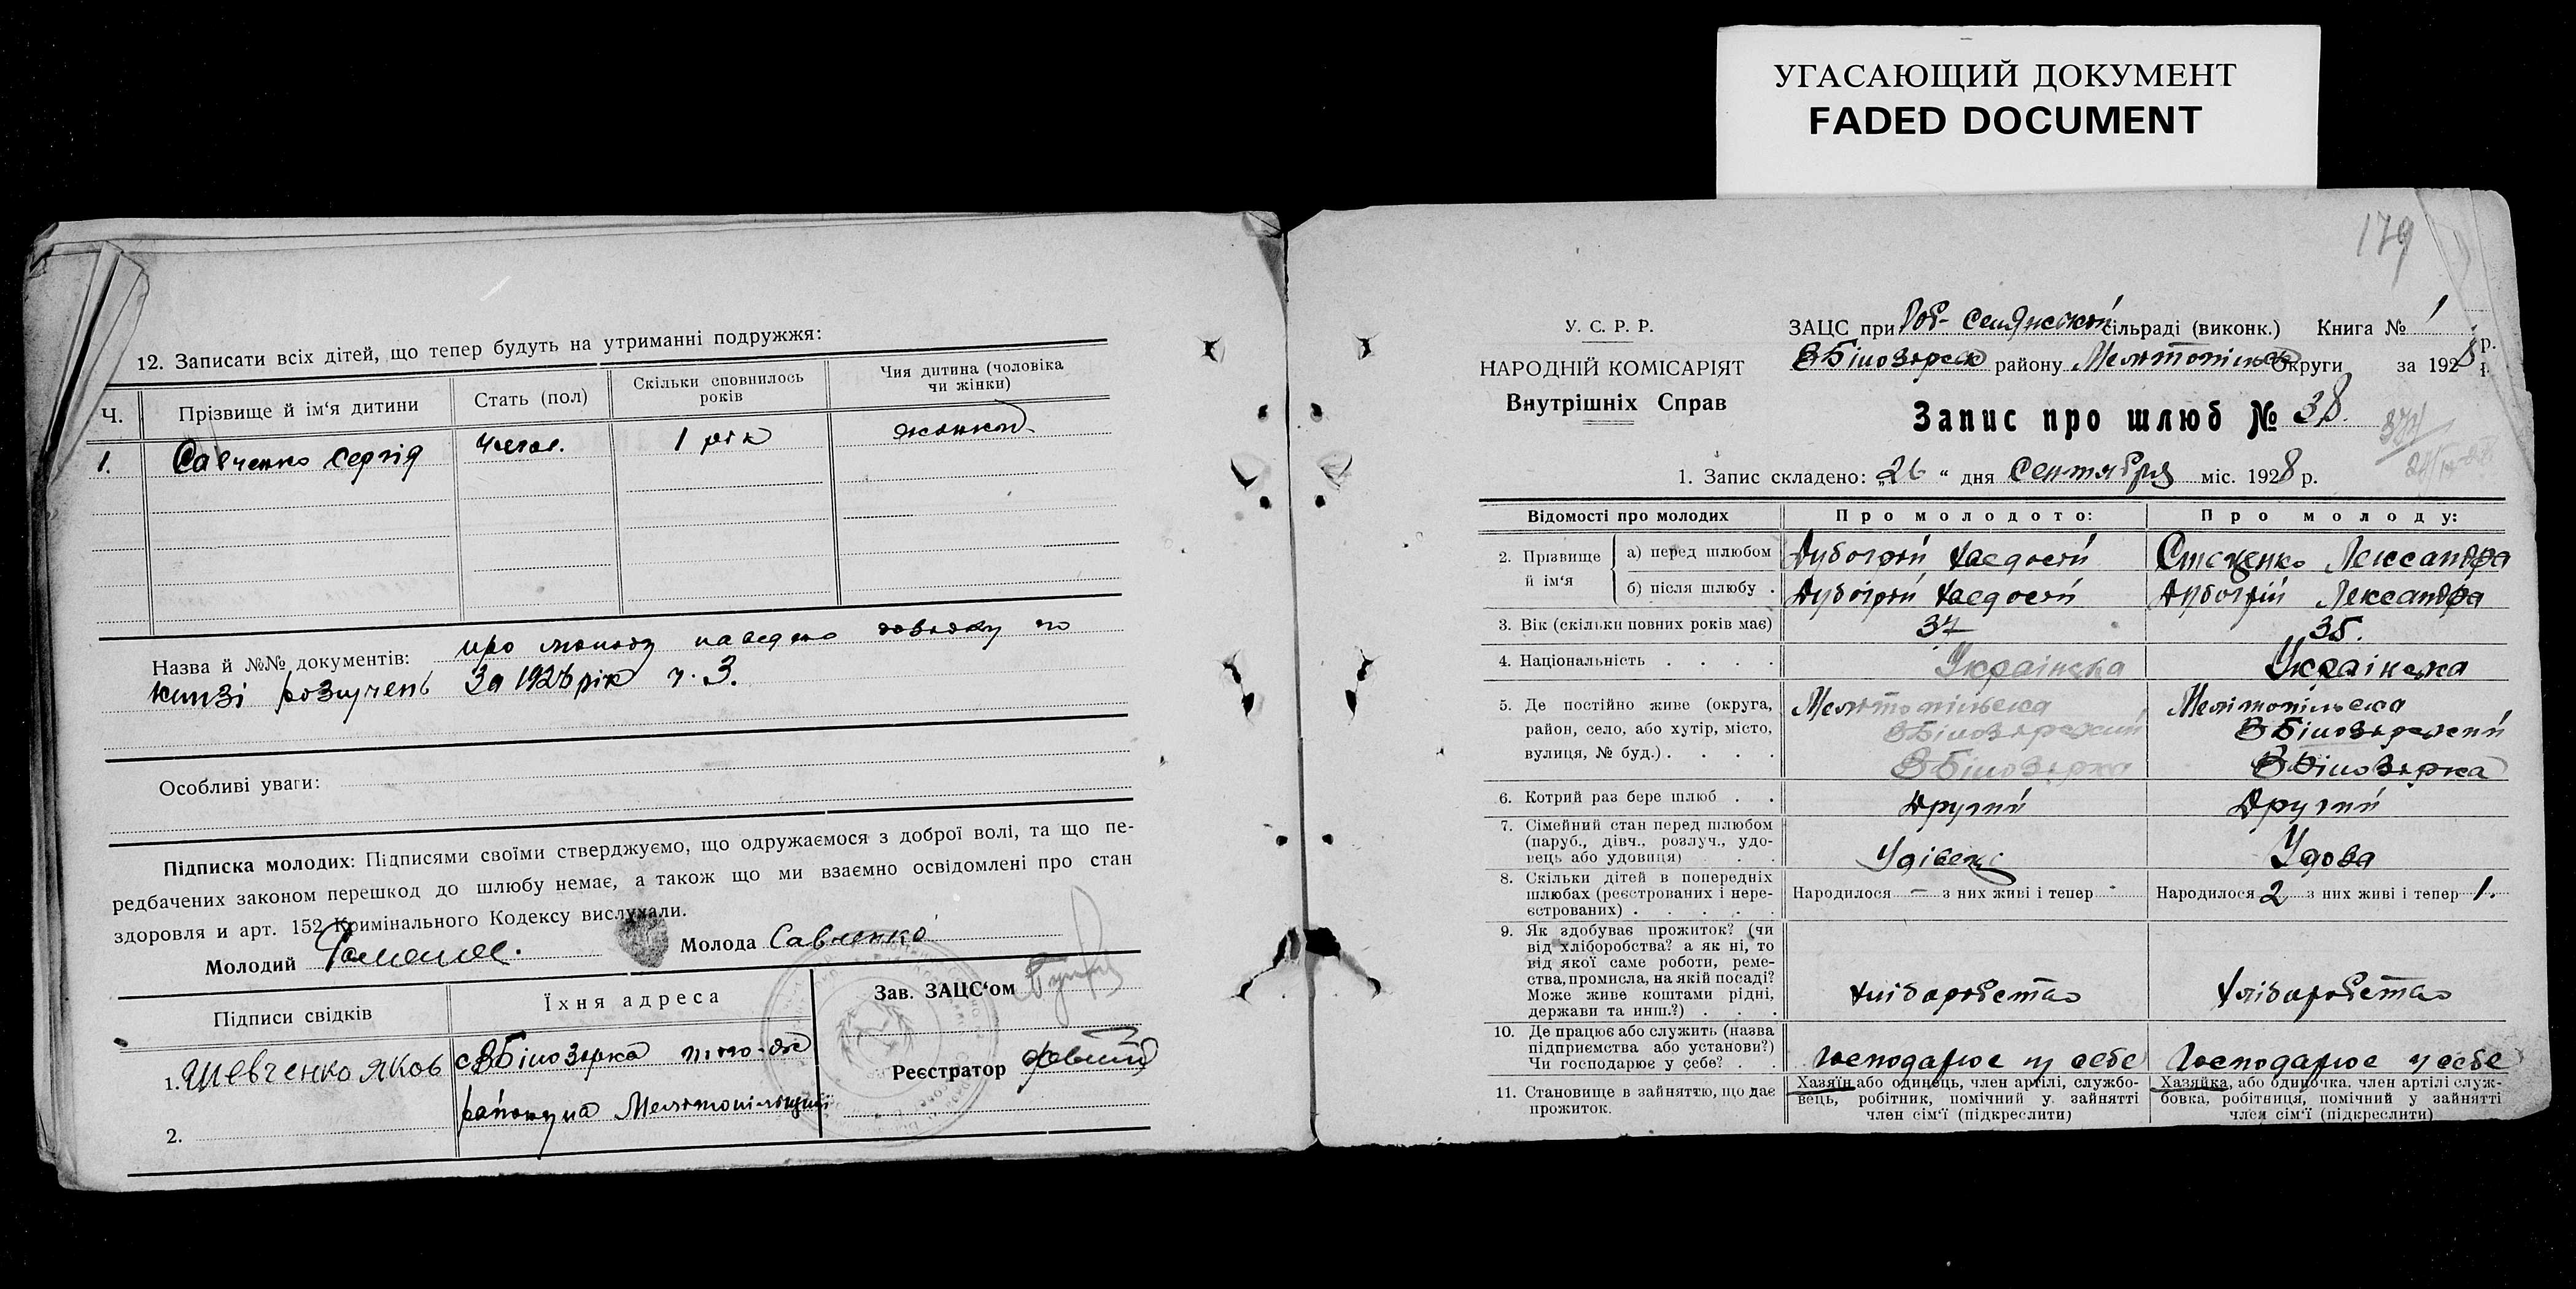 УГАСАЮЩИЙ ДОКУМЕНТ
FADED DOCUMENT
12. Записати всіх дітей, що тепер будуть на утриманні подружжя:
Ч. Прізвище й ім‘я дитини Стать (пол) Скільки сповнилось років Чия дитина (чоловіка чи жінки)
1. Савченко Сергій 1 рік
Назва й №№ документів: про молоду наведено довідку по
книзі розлучень за 1926 рік ч. 3.
Особливі уваги:
Підписка молодих: Підписями своїми стверджуємо, що одружаємося з доброї волі, та що пе-
редбачених законом перешкод до шлюбу немає, а також що ми взаємно освідомлені про стан
здоровля и арт. 152 Кримінального Кодексу вислухали.
Молодий Молода Савченко
Підписи свідків Їхня адреса Зав. ЗАЦС‘ом
1. Шевченко Яков с ВБілозірка того-ж
Реєстратор
району на
2.
179
У. С. Р. Р.
НАРОДНІЙ КОМІСАРІЯТ
Внутрішніх Справ
ЗАЦС при Роб- Селянській сільраді (виконк.) Книга № 1
ВБілозірськ району Мелітопільськ Округи за 1928 р.
Запис про шлюб № 38.
1. Запис складено: „26“ дня Сентября міс. 1928 р.
Відомості про молодих Про молодого: Про молоду:
2. Прізвище й ім‘я а) перед шлюбом Александра
б) після шлюбу Александра
3. Вік (скільки повних років має) 37 35.
4. Національність Українська Українська
5. Де постійно живе (округа, Мелітопільська Мелітопільска
район, село, або хутір, місто, ВБілозірский ВБілозірский
вулиця, № буд.) ВБілозірка ВБілозірка
6. Котрий раз бере шлюб Другий Другий
7. Сімейний стан перед шлюбом
(паруб., дівч., розлуч., удо-
вець або удовиця) Удівець Удова
8. Скільки дітей в попередніх
шлюбах (реєстрованих і нере- Народилося — з них живі і тепер - Народилося 2 з них живі і тепер 1.
єстрованих)
9. Як здобуває прожиток? (чи
від хліборобства? а як ні, то
від якої саме роботи, реме-
ства, промисла, на якій посаді?
Може живе коштами рідні, Хліборобство Хліборобство
держави та инш.?)
10. Де працює або служить (назва
підприємства або установи?)
Чи господарює у себе? Господарює у себе Господарює у себе
11. Становище в зайняттю, що дає
прожиток.
Хазяїн або одинець, член артілі, службо-
вець, робітник, помічний у зайнятті
член сім‘ї (підкреслити)
Хазяйка, або одиночка, член артілі служ-
бовка, робітниця, помічний у зайнятті
член сім‘ї (підкреслити)